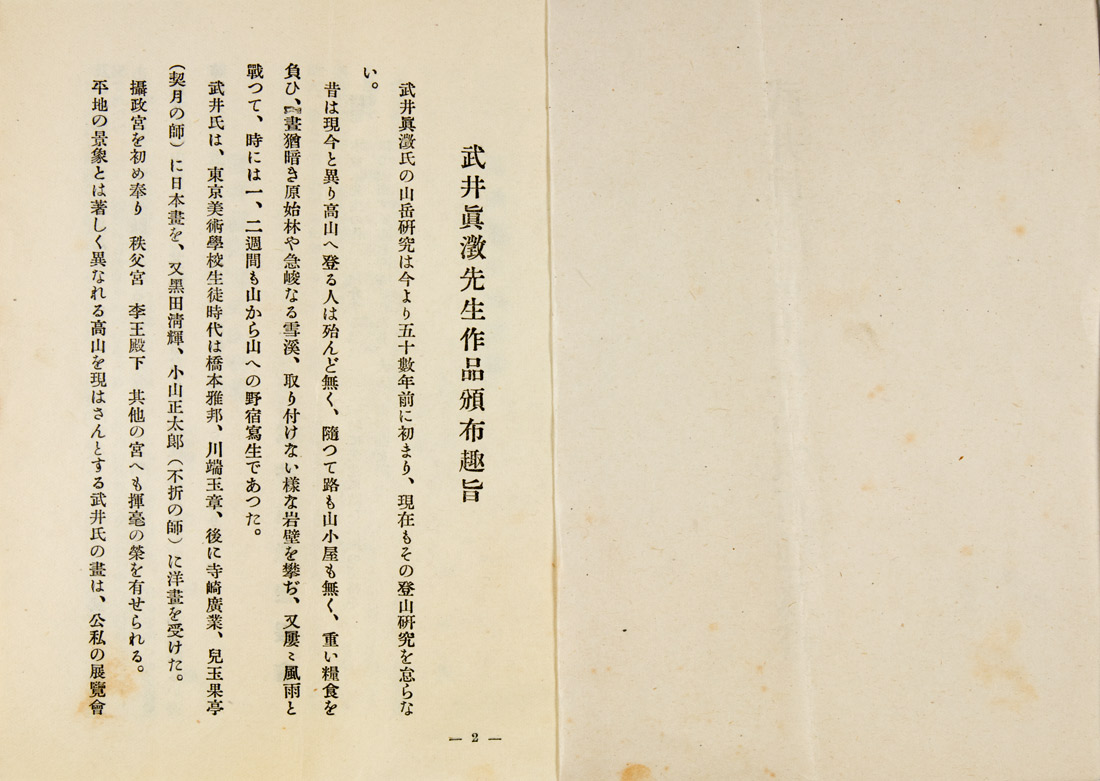 武井眞澂先生作品頒布趣旨
武井眞澂氏の山岳研究は今より五十數年前に初まり、現在もその登山研究を怠らな
い。
昔は現今と異り高山へ登る人は殆んど無く、隨つて路も山小屋も無く、重い糧食を
負ひ、晝猶暗き原始林や急峻なる雪溪、取り付けない樣な岩壁を攀ぢ、又屢〻風雨と
戰つて、時には一、二週間も山から山への野宿寫生であつた。
武井氏は、東京美術學校生徒時代は橋本雅邦、川端玉章、後に寺崎廣業、兒玉果亭
(契月の師)に日本畫を、又黑田淸輝、小山正太郞(不折の師)に洋畫を受けた。
攝政宮を初め奉り　秩父宮　李王殿下　其他の宮へも揮毫の榮を有せられる。
平地の景象とは著しく異なれる高山を現はさんとする武井氏の畫は、公私の展覽會
— 2 —